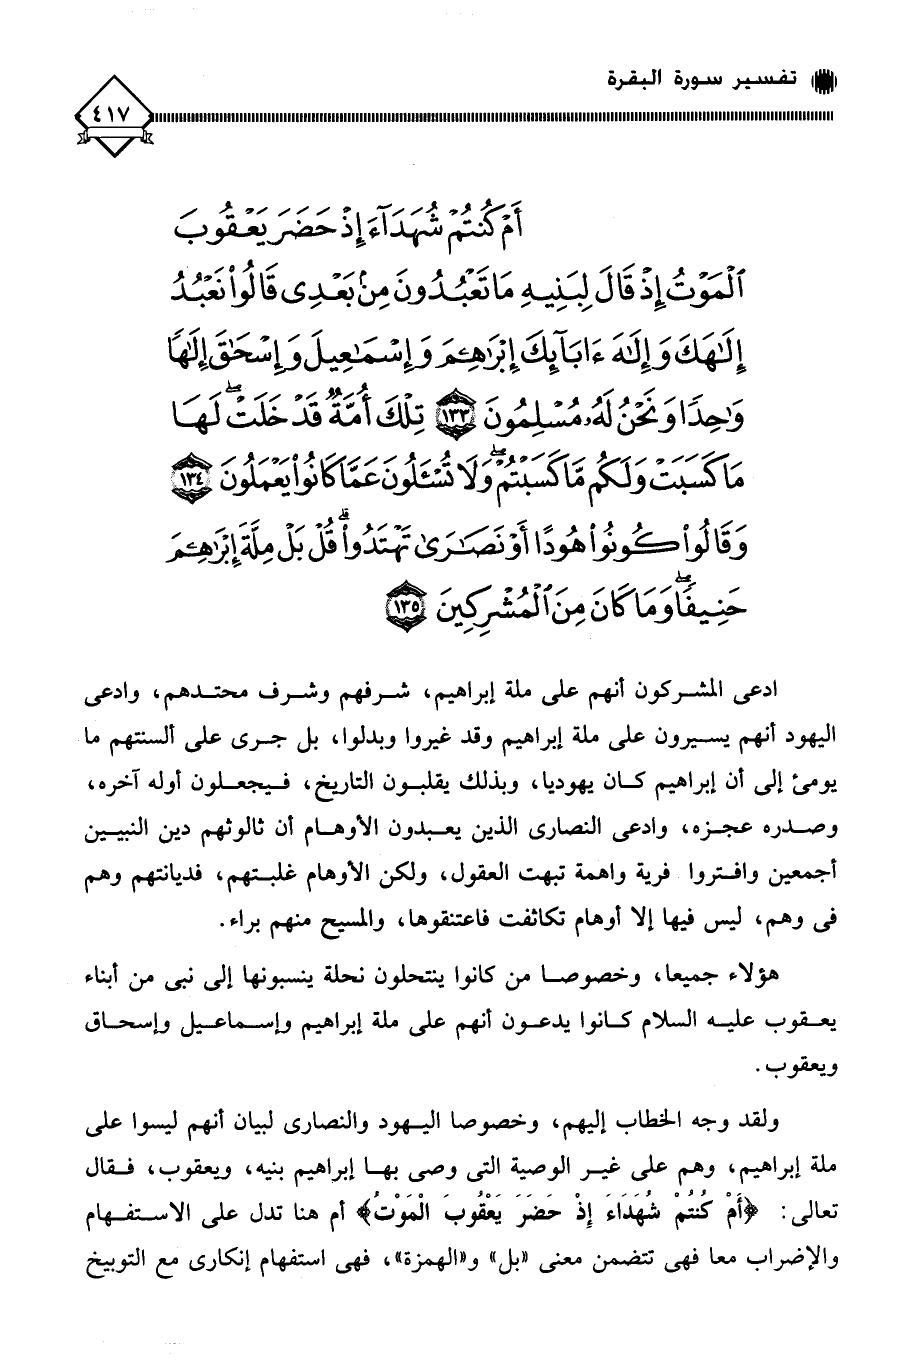 تفسير سورة البقرة
٤١٧
أَمْ كُنتُمْ شُهَدَآءَ إِذْ حَضَرَ يَعْقُوبَ
ٱلْمَوْتُ إِذْ قَالَ لِبَنِيهِ مَا تَعْبُدُونَ مِنۢ بَعْدِى قَالُوا۟ نَعْبُدُ
إِلَـٰهَكَ وَإِلَـٰهَ ءَابَآئِكَ إِبْرَٰهِـۧمَ وَإِسْمَـٰعِيلَ وَإِسْحَـٰقَ إِلَـٰهًا
وَٰحِدًا وَنَحْنُ لَهُۥ مُسْلِمُونَ ١٣٣ تِلْكَ أُمَّةٌ قَدْ خَلَتْ ۖ لَهَا
مَا كَسَبَتْ وَلَكُم مَّا كَسَبْتُمْ ۖ وَلَا تُسْـَٔلُونَ عَمَّا كَانُوا۟ يَعْمَلُونَ ١٣٤
وَقَالُوا۟ كُونُوا۟ هُودًا أَوْ نَصَـٰرَىٰ تَهْتَدُوا۟ ۗ قُلْ بَلْ مِلَّةَ إِبْرَٰهِـۧمَ
حَنِيفًا ۖ وَمَا كَانَ مِنَ ٱلْمُشْرِكِينَ ١٣٥
ادعى المشركون أنهم على ملة إبراهيم، شرفهم وشرف محتدهم، وادعى
اليهود أنهم يسيرون على ملة إبراهيم وقد غيروا وبدلوا، بل جرى على ألسنتهم ما
يومئ إلى أن إبراهيم كان يهوديا، وبذلك يقلبون التاريخ، فيجعلون أوله آخره،
وصدره عجزه، وادعى النصارى الذين يعبدون الأوهام أن ثالوثهم دين النبيين
أجمعين وافتروا فرية واهمة تبهت العقول، ولكن الأوهام غلبتهم، فديانتهم وهم
فى وهم، ليس فيها إلا أوهام تكاثفت فاعتنقوها، والمسيح منهم براء.
هؤلاء جميعا، وخصوصا من كانوا ينتحلون نحلة ينسبونها إلى نبى من أبناء
يعقوب عليه السلام كانوا يدعون أنهم على ملة إبراهيم وإسماعيل وإسحاق
ويعقوب.
ولقد وجه الخطاب إليهم، وخصوصا اليهود والنصارى لبيان أنهم ليسوا على
ملة إبراهيم، وهم على غير الوصية التى وصى بها إبراهيم بنيه، ويعقوب، فقال
تعالى: ﴿أَمْ كُنتُمْ شُهَدَاءَ إِذْ حَضَرَ يَعْقُوبَ الْمَوْتُ﴾ أم هنا تدل على الاستفهام
والإضراب معا فهى تتضمن معنى «بل» و«الهمزة»، فهى استفهام إنكارى مع التوبيخ